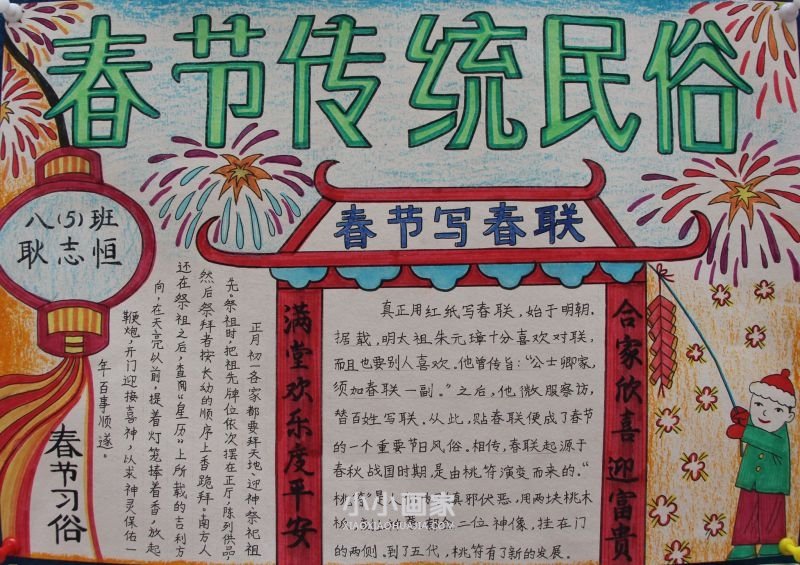 春节传统民俗
八(5)班
耿志恒
春节写春联
满堂欢乐度平安
合家欣喜迎富贵
真正用红纸写春联，始于明朝。
据载，明太祖朱元璋十分喜欢对联，
而且也要别人喜欢。他曾传旨："公士卿家，
须加春联一副。"之后，他微服察访，
替百姓写联。从此，贴春联便成了春节
的一个重要节日风俗。相传，春联起源于
春秋战国时期是由桃符演变而来的。"
桃符"是人 镇邪伏恶，用两块桃木
板 二位神像，挂在门
的两侧。到了五代，桃符有了新的发展。
正月初一各家都要拜天地、迎神、祭祀祖
先。祭祖时，把祖先牌位依次摆在正厅，陈列供品，
然后祭拜者按长幼的顺序上香跪拜。南方人
还在祭祖之后，查阅"星历"上所载的吉利方
向，在天亮以前，提着灯笼捧着香，放起
鞭炮，开门迎接喜神，以求神灵保佑一
年百事顺遂。
春节习俗
小小画家
XIAOXIAOHUAJIA.COM